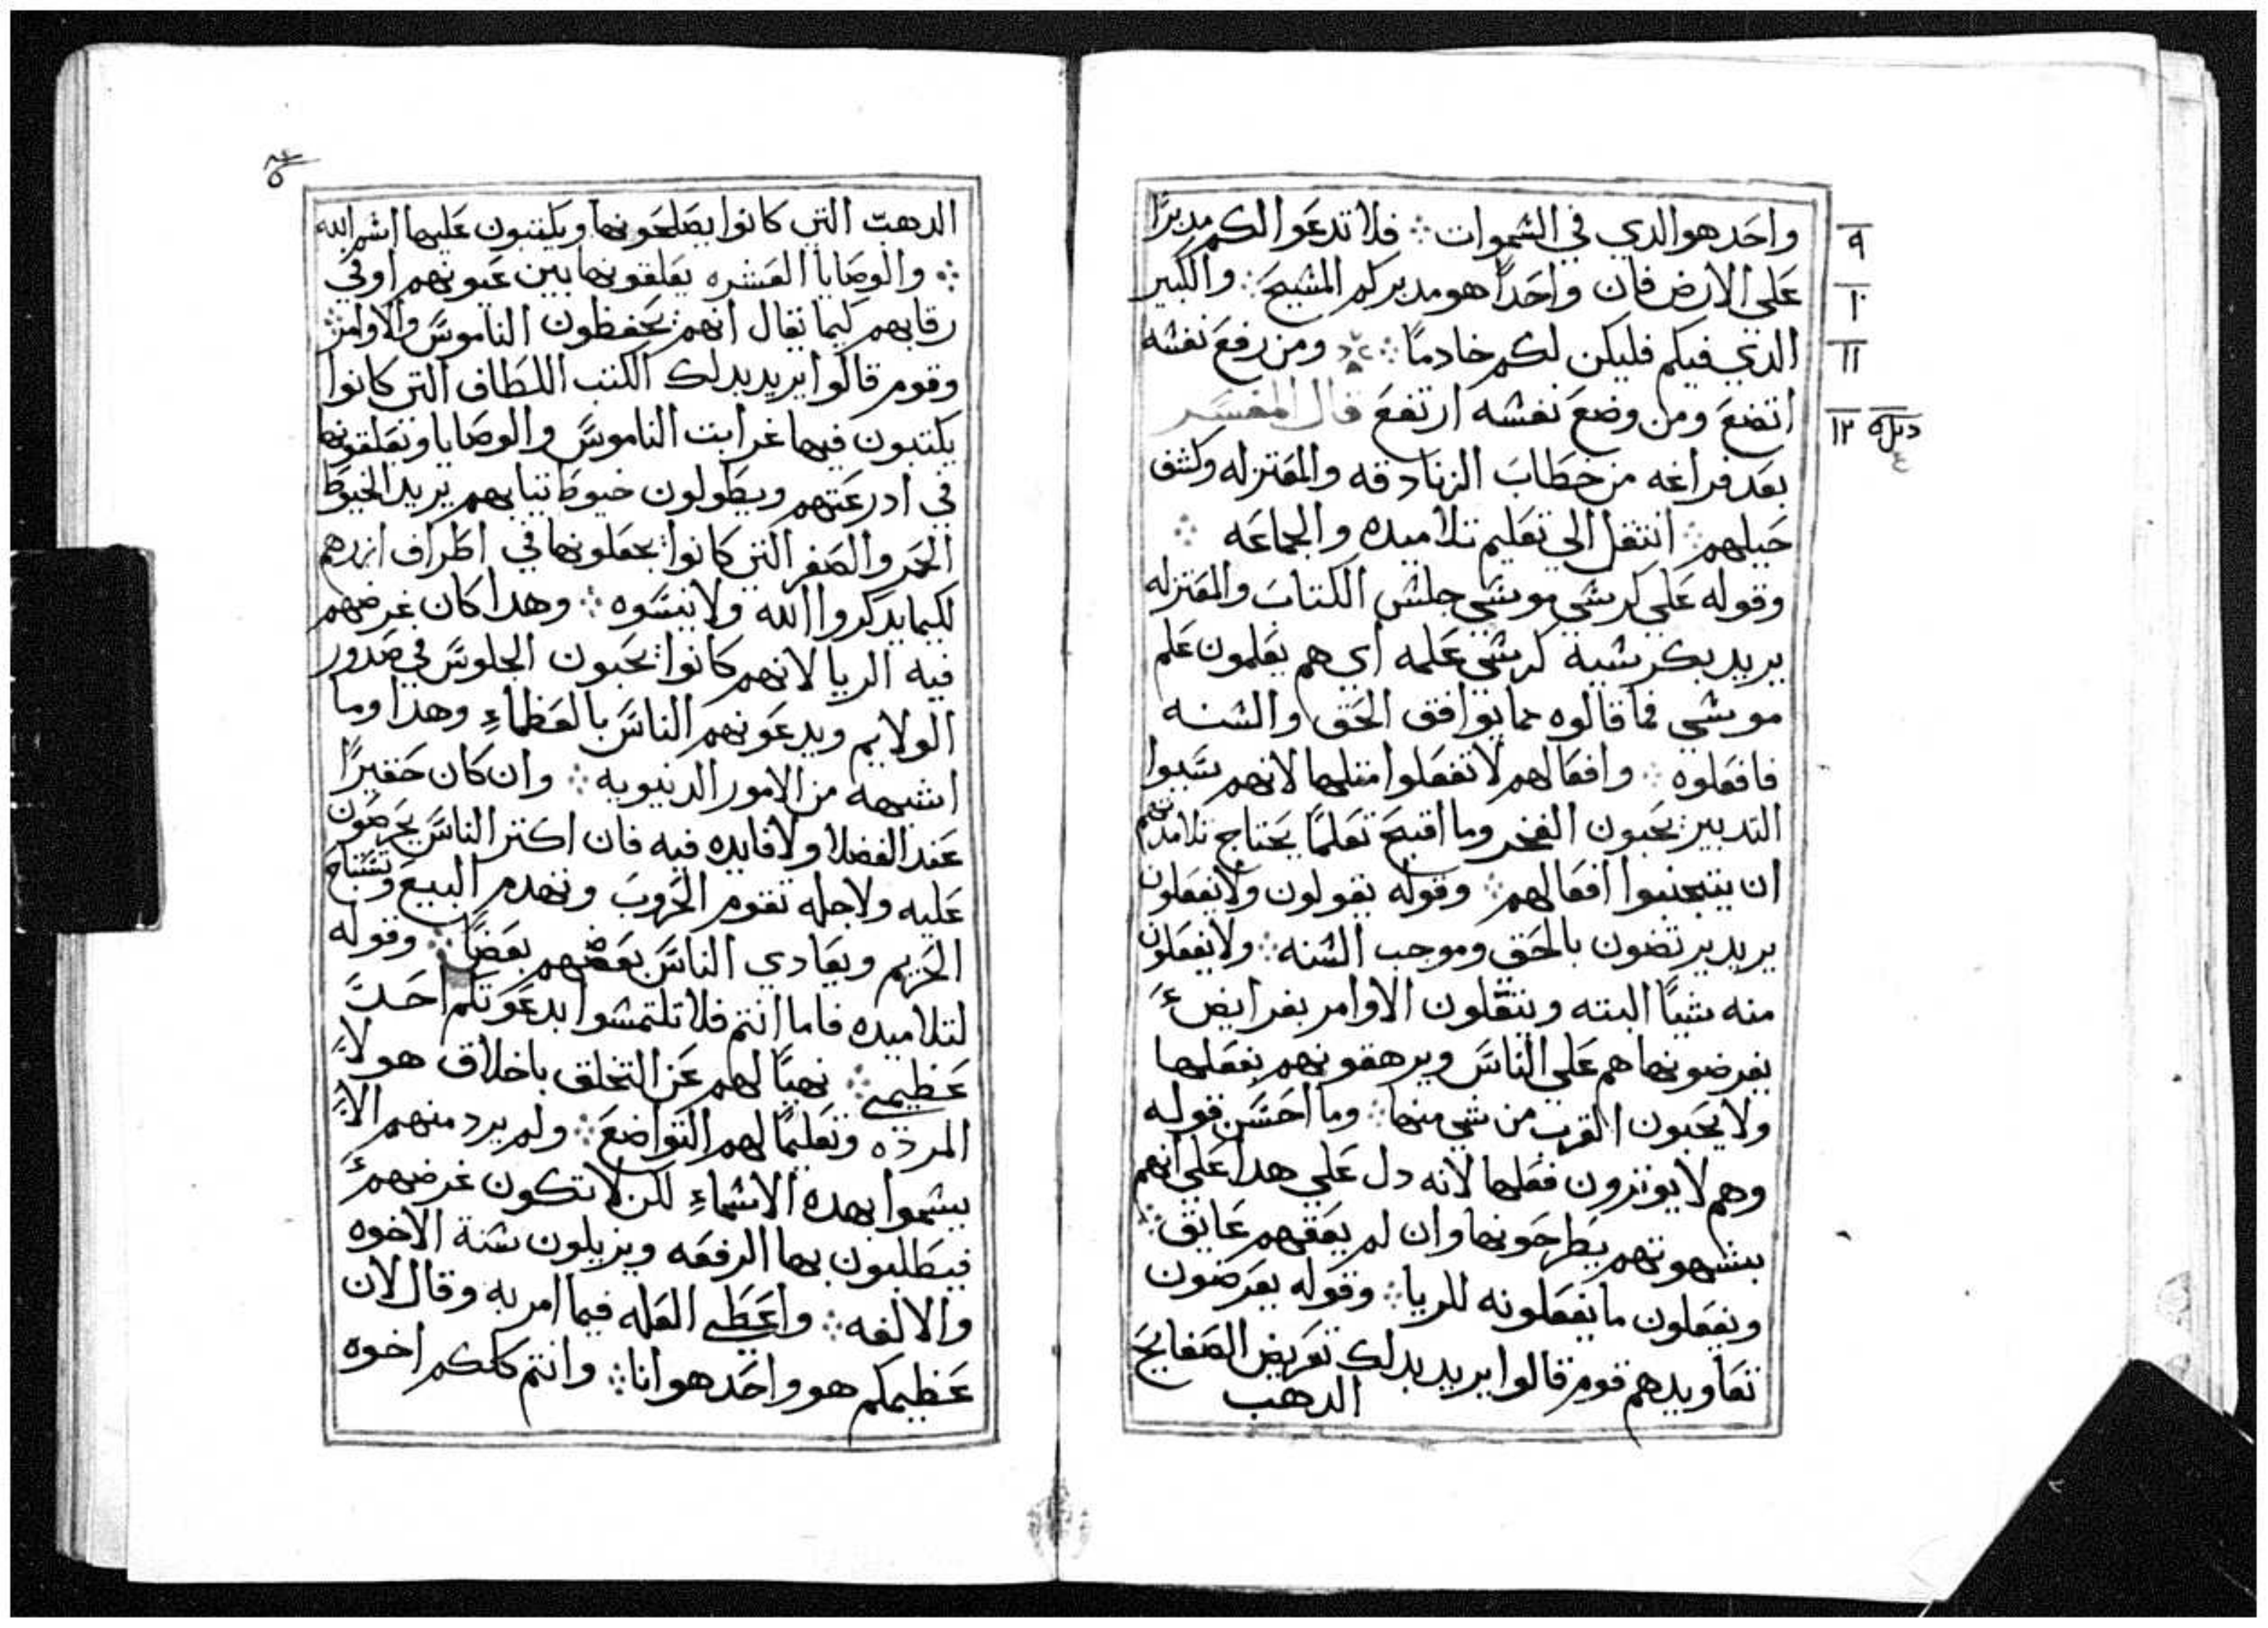 واحد هو الدي في الشموات ⁘ فلا تدعوا لكم مدبرًا
علي الارض فان واحدًا هو مدبركم المشيح ⁘ والكبير
الدي فيكم فليكن لكم خادمًا ⁘ ومن رفع نفشه
اتضع ومن وضع نفشه ارتفع قال المفسر
بعد فراغه من خطاب الزنادقه والمعتزله وكشف
حيلهم ⁘ انتقل الي تعليم تلاميده والجماعه ⁘
وقوله علي كرشي موشي جلش الكتاب والمعتزله
يريد بكرشيه كرشي علمه اي هم يعلمون علم
موشي فما قالوه مما يوافق الحق والشنه
فافعلوه ⁘ وافعالهم لا تفعلوا مثلها لانهم
التدبير يحبون الفخر وما اقبح تعلمًا يحتاج تلامدتهم
ان يتجنبوا افعالهم ⁘ وقوله يقولون ولا يفعلون
يريد يرتضون بالحق وموجب الشنه ⁘ ولا يفعلون
منه شيًا البته ويثقلون الاوامر بفرايض
يفرضونها هم علي الناس ويرهقونهم بفعلها
ولا يحبون القرب من شي منها ⁘ وما احسن قوله
وهم لا يوثرون فعلها لانه دل علي هدا علي انهم
بشهوتهم يطرحونها وان لم يعقهم عايق ⁘
ويفعلون ما يفعلونه للريا ⁘ وقوله يعرضون
تعاويدهم قوم قالوا يريد بدلك تعريض الصفايح
الدهب
٩
١٠
١١
١٢
الدهب التي كانوا يصلحونها ويكتبون عليها اشم الله
⁘ والوصايا العشره يعلقونها بين عيونهم او في
رقابهم كيما يقال انهم يحفظون الناموس والاوامر ⁘
وقوم قالوا يريد بدلك الكتب اللطاف التي كانوا
يكتبون فيها غرايب الناموس والوصايا وتعلقونها
في ادرعتهم ويطولون خيوط تيابهم يريد الخيوط
الحمر والصفر التي كانوا يجعلونها في اطراف ازرهم
لكيما يدكروا الله ولا ينسوه ⁘ وهدا كان غرضهم
فيه الريا لانهم كانوا يحبون الجلوس في صدور
الولايم ويدعونهم الناس بالعظماء وهدا وما
اشبهه من الامور الدنيويه ⁘ وان كان حقيرًا
عند الفضلا ولا فايده فيه فان اكتر الناس يحرصون
عليه ولاجله تقوم الحروب وتهدم البيع وتستباح
الحريم ويعادي الناس بعضهم بعضًا ⁘ وقوله
لتلاميده فاما انتم فلا تلتمشوا بدعوتكم احدًا
عظيمي ⁘ نهيًا لهم عن التخلق باخلاق هولاء
المرده وتعليمًا لهم التواضع ⁘ ولم يرد منهم الا
يشموا بهده الاشماء لكن لا تكون غرضهم
فيطلبون بها الرفعه ويزيلون شنة الاخوه
والالفه ⁘ واعطي العله فيما امر به وقال لان
عظيمكم هو واحد هو انا ⁘ وانتم كلكم اخوه